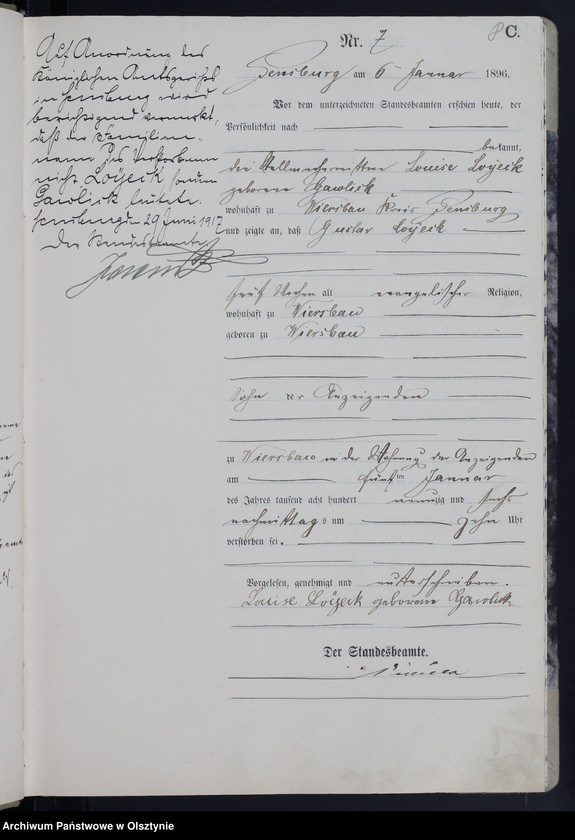 8 C.
Nr. 7
Sensburg am 6 Januar 1896.
Vor dem unterzeichneten Standesbeamten erschien heute, der
Persönlichkeit nach
bekannt,
die Stellmacherwittwe Louise Loÿeck
geborene Gawlick
wohnhaft zu Wiersbau Kreis Sensburg
und zeigte an, daß Gustav Loÿeck
Wochen alt evangelischer Religion,
wohnhaft zu Wiersbau
geboren zu Wiersbau
Sohn der Anzeigenden
zu Wiersbau in der Wohnung der Anzeigenden
am fünften Januar
des Jahres tausend acht hundert neunzig und sechs
nachmittags um zehn Uhr
verstorben sei.
Vorgelesen, genehmigt und unterschrieben.
Louise Loÿeck geborene Gawlick
Der Standesbeamte.
Auf Anordnung des
Königlichen Amtsgerichts
in Sensburg wird
berichtigend vermerkt,
daß der Familien-
name des Verstorbenen
nicht Loÿeck sondern
Gawlick lautete.
Sensburg den 29 Juni 1917
Der Standesbeamte
Archiwum Państwowe w Olsztynie